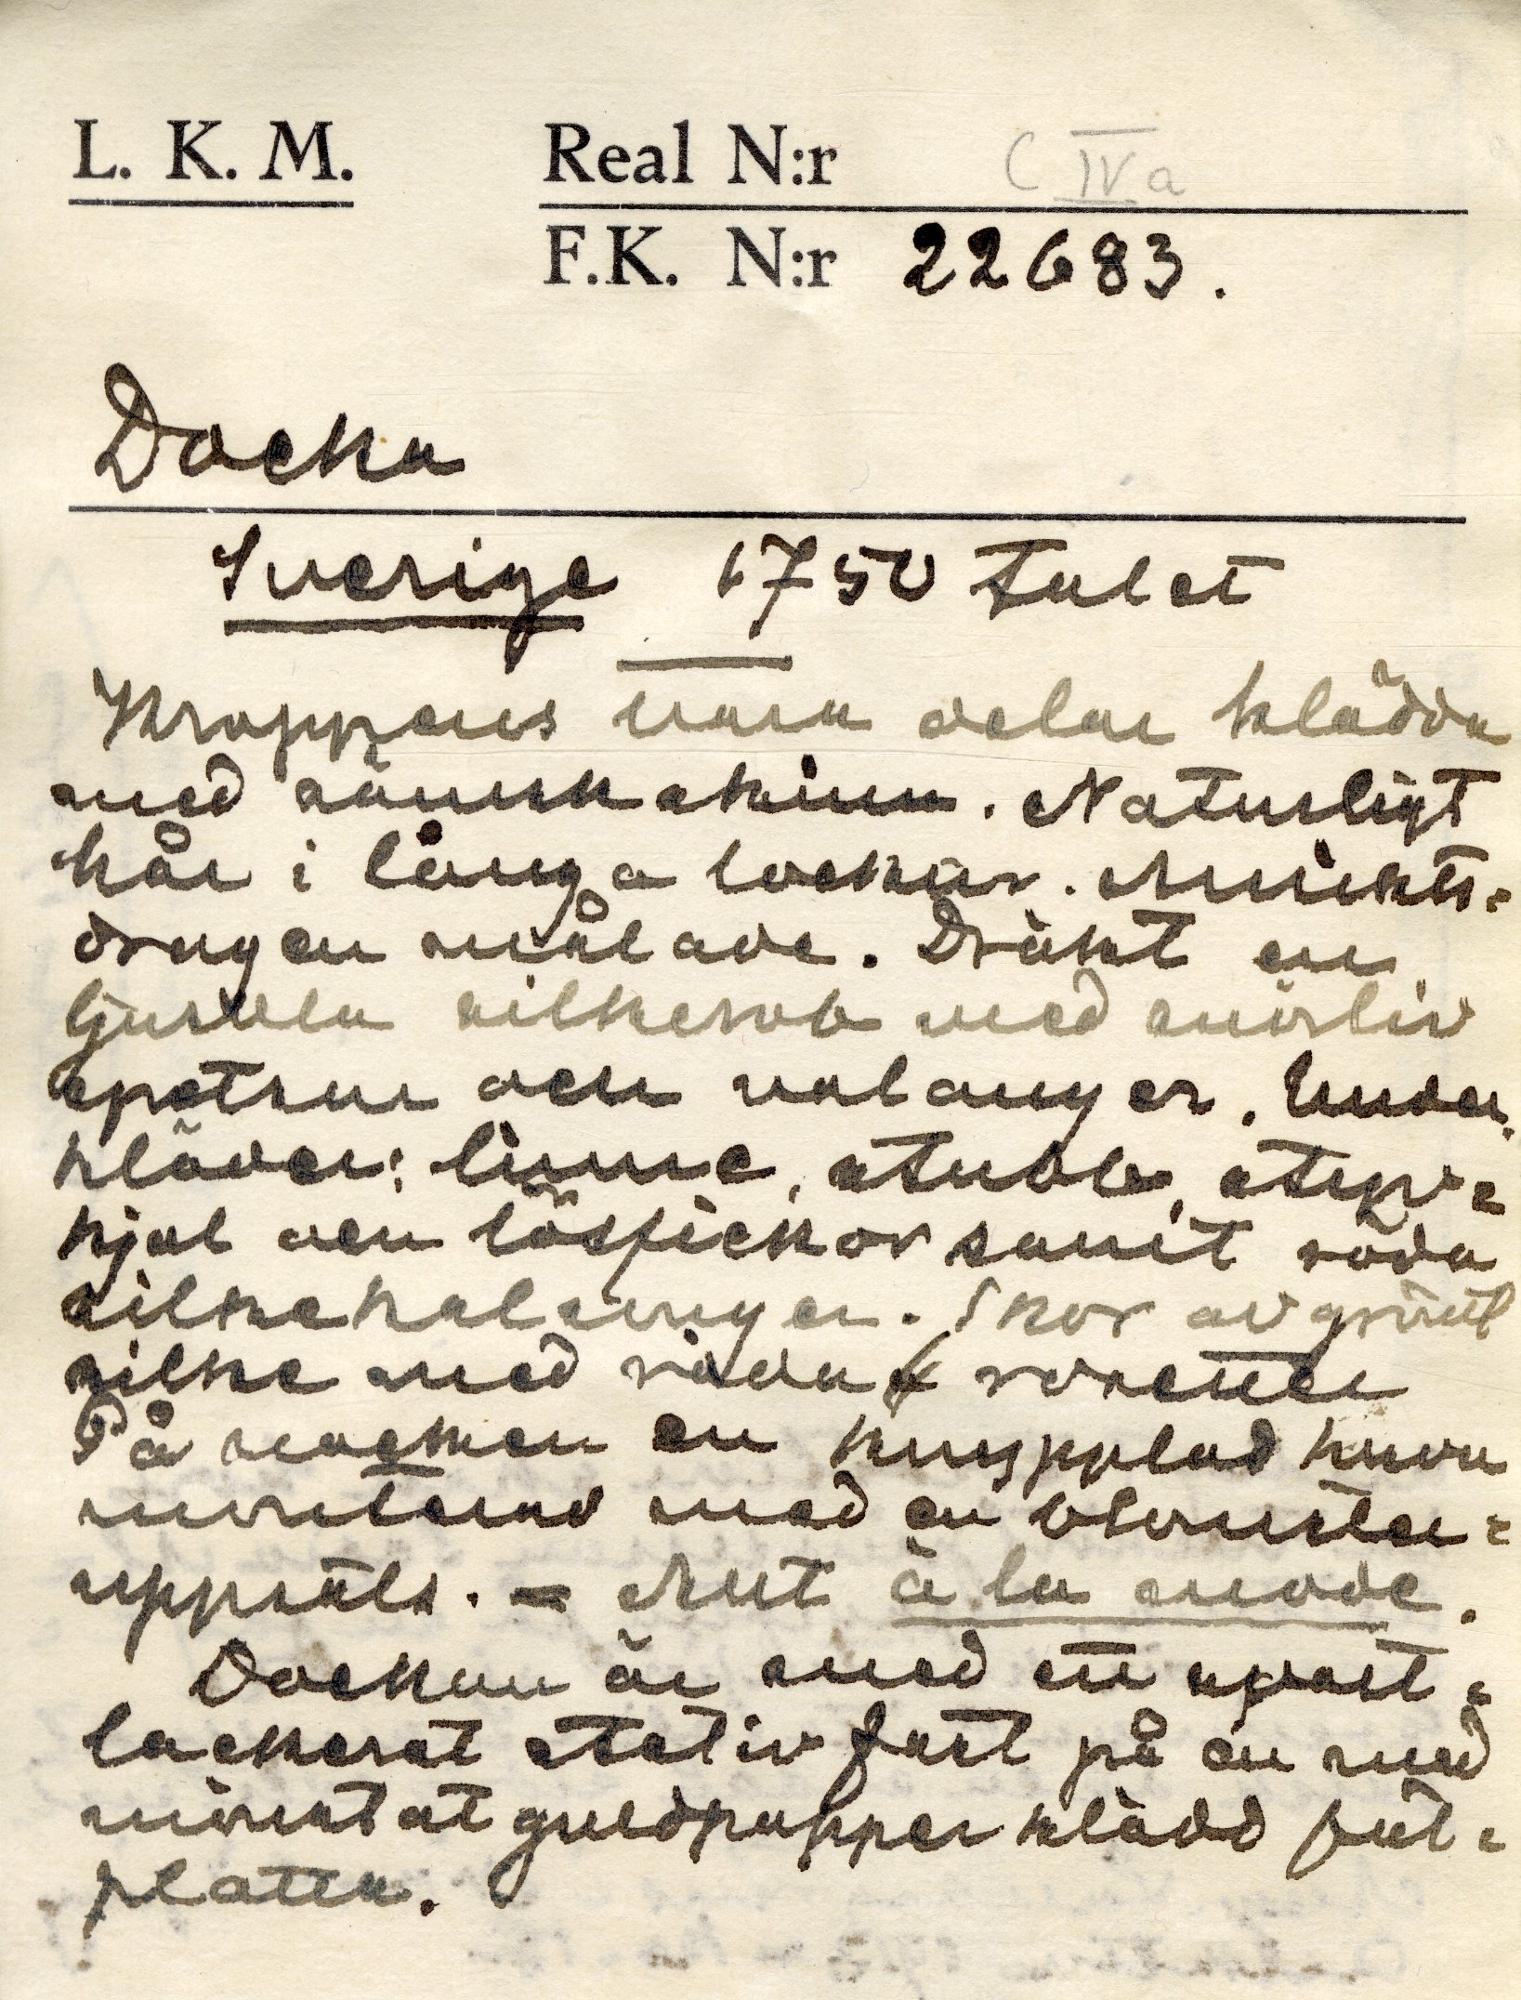 L. K. M. Real N:r C IVa
F.K. N:r 22683.
Docka
Sverige 1750 talet
Kroppens bara delar klädda
med sämskskinn. Naturligt
hår i långa lockar. Ansikts-
dragen målade. Dräkt en
ljusblå silkesrob med snörliv
apetsnu och volanger. Under-
kläder: linne, stubb, styv-
kjol och lösfickor samt röda
silkehalsinger. Skor av grönt
silke med röda rosetter
På nacken en knypplad huva
monterad med en blomster-
uppsats. = Allt à la mode.
Dockan är med ett svart-
lackerat stativ fast på en med
mönstrat guldpapper klädd fot-
platta.